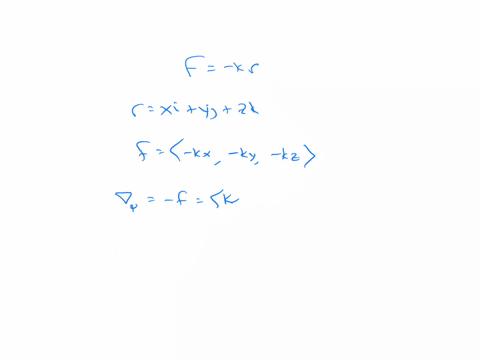 F = -kr
r = xi + yj + zk
f = ⟨-kx, -ky, -kz⟩
∇φ = -f = ⟨k